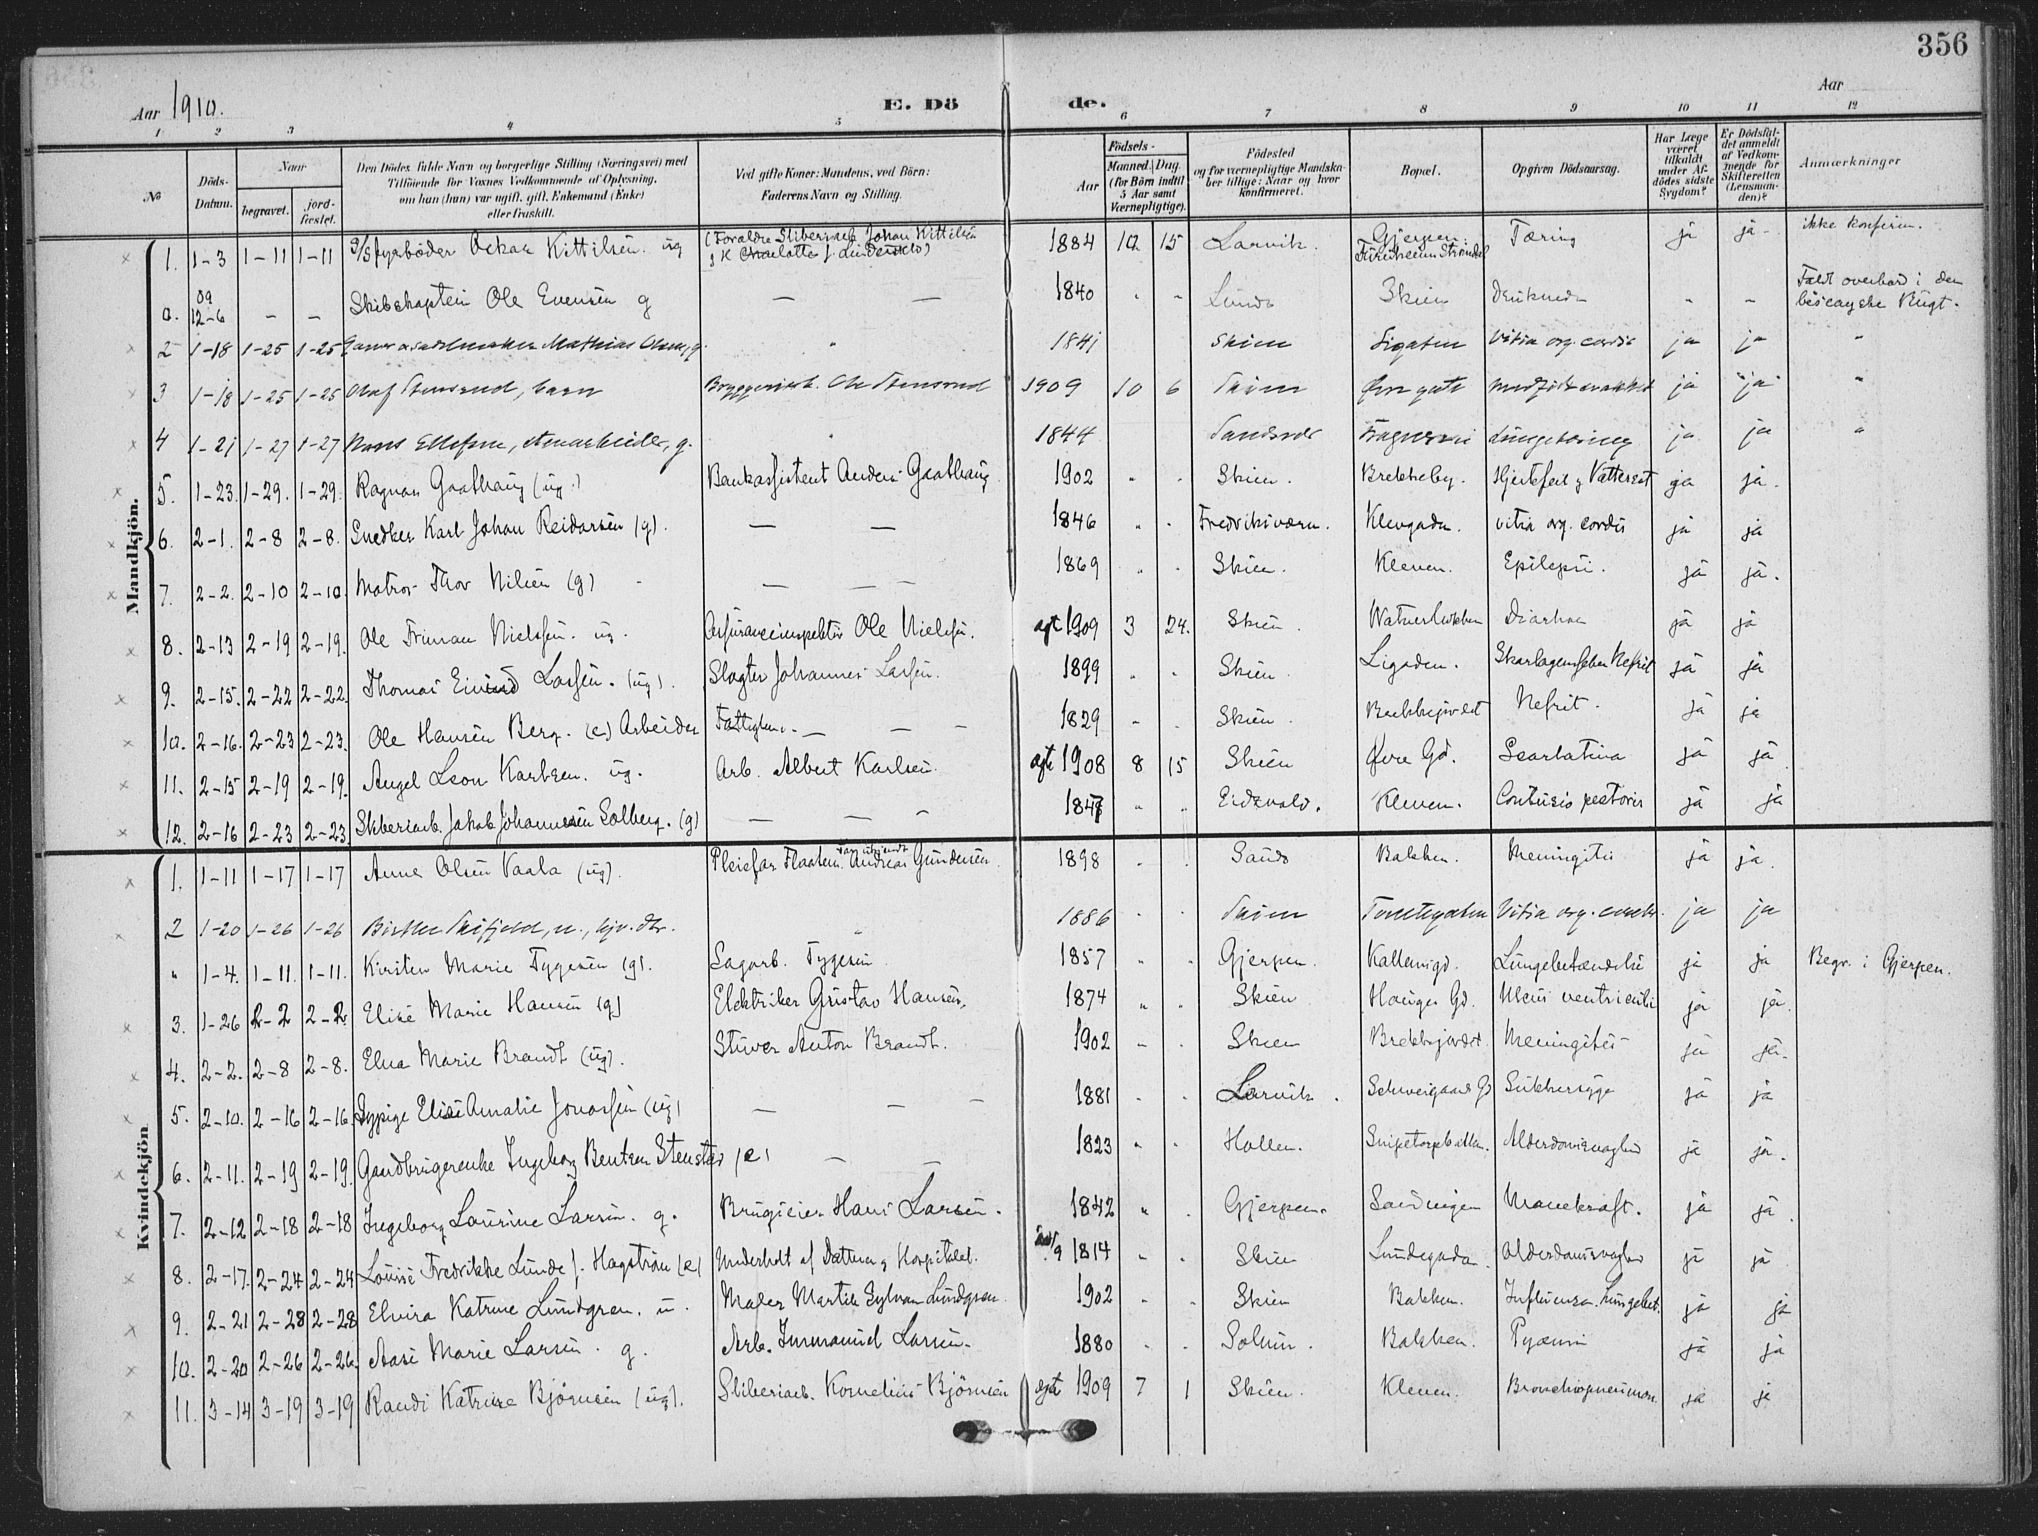 356
Aar 1910.
E. Döde.
Aar
1 2 3 4 5 6 7 8 9 10 11 12
No
Döds-Datum.
Naar
begravet.
jord-fæstet.
Den Dødes fulde Navn og borgerlige Stilling (Næringsvei) med
Tilföiende for Voxnes Vedkommende af Oplysning,
om han (hun) var ugift, gift, Enkemand (Enke)
eller fraskilt.
Ved gifte Koner: Mandens, ved Börn:
Faderens Navn og Stilling.
Födsels-
Aar
Maaned. Dag.
(for Börn indtil
5 Aar samt
Værnepligtige).
Födested
og for værnepligtige Mandska-
ber tillige: Naar og hvor
konfirmeret.
Bopæl.
Opgiven Dödsaarsag.
Har Læge
været
tilkaldt
under Af-
dödes sidste
Sygdom?
Er Dödsfal-
det anmeldt
af Vedkom-
mende for
Skifteretten
(Lensman-
den)?
Anmærkninger
Mandkjön.
1. 1-3 1-11 1-11 fyrbøder Oskar Kittilsen. ug (Forældre Sliberiarb. Johan Kittilsen 1884 10 15 Larvik. Gjerpen Tæring ja ja ikke konfirm.
0. 09 12-6 - - Skibskaptein Ole Evensen g - - 1840 " " Lunde Skien Druknede " " Faldt overbord i den biscayske Bugt.
2 1-18 1-25 1-25 Garver & sadelmaker Mathias Olsen, g. " 1841 Skien Ligaten Vitia org. cordis ja ja "
3 1-18 1-25 1-25 Olaf Stensrud, barn Bryggeriarb. Ole Stensrud 1909 10 6 Skien Øvregate medfødt svakhet ja ja "
4 1-21 1-27 1-27 Hans Ellefsen, stenarbeider, g. " 1844 Sandsvær Lungetæring ja ja "
5. 1-23. 1-29. 1-29. Ragnar Gaathaug (ug.) Bankassistent Anders Gaathaug 1902 " " Skien. Brekkeby. Hjertefeil og Vattersot ja ja.
6. 2-1. 2-8 2-8. Snedker Karl Johan Reidarsen (g). - - 1846 " " Fredriksværn. Klevgaden. vitia org. cordis ja ja
7. 2-2. 2-10 2-10. Matros Thov Nilsen (g) - - 1869 " " Skien. Kleven. Epilepsi. ja ja.
8. 2-13 2-19 2-19. Ole Friman Nielsen. ug. Assuranceinspektør Ole Nielsen. ægte 1909 3 24. Skien. Diarhoe ja ja
9. 2-15. 2-22 2-22. Thomas Eivind Larsen. (ug). Slagter Johannes Larsen. 1899 " " Skien. Ligaden. Skarlagensfeber Nefrit ja ja
10. 2-16. 2-23 2-23. Ole Hansen Berg. (e) Arbeider Fattighus. - - - 1829 " " Skien. Brekkejordet Nefrit. ja ja
11. 2-15 2-19 2-19. Angel Leon Karlsen. ug. Arb. Albert Karlsen. ægte 1908 8 15 Skien Øvre Gd. Scarlatina ja ja
12. 2-16 2-23 2-23. Sliberiarb. Jakob Johannesen Solberg. (g) - - - 1847 " " Eidsvold. Kleven. Contusio pectoris ja ja
Kvindekjön
1. 1-11 1-17 1-17 Anne Olsen Vaala (ug). Pleiefar Andreas Gundersen 1898 " " Sauda Bakken. Meningitis ja ja.
2 1-20 1-26 1-26 1886 " " Skien Torvetgaten Vitia org. cordis. ja ja
" 1-4. 1-11. 1-11. Kirsten Marie Tygesen (g). Sagarb. Tygesen 1857 " " Gjerpen. Lungebetændelse ja ja Begr. i Gjerpen.
3. 1-26 2-2 2-2. Elise Marie Hansen (g) Elektriker Gustav Hansen. 1874 " " Skien Hauges Gd. Ulcus ventriculi ja ja.
4. 2-2. 2-8 2-8. Elna Marie Brandt (ug). Stuver Anton Brandt. 1902 " " Skien Brekkejordet. Meningitis ja ja.
5. 2-10. 2-16 2-16. Sypige Elise Amalie Jonassen (ug) - - - 1881 " " Larvik. Schweigaards Gd Sukkersyge ja ja
6. 2-11. 2-19 2-19. Gaardbrugerenke Ingeborg Bentsen Stenstad (e) - - 1823 " " Hollen. Snipetorpbakken. Alderdomssvaghed ja ja.
7. 2-12 2-18 2-18 Ingeborg Laurine Larsen. g. Brugseier Hans Larsen. 1842 " " Gjerpen. Mavekræft. ja ja.
8. 2-17. 2-24 2-24 Louise Fredrikke Lunde f. Hagstrøm (e) Underholdt af Datteren og Hospitalet. 1814 " " Skien Lundegaden. Alderdomssvaghed ja ja
9. 2-21 2-28 2-28 Elvira Katrine Lundgren. u. Maler Martin Sylvan Lundgren. 1902 " " Skien Bakken. Influensa. Lungebet. ja ja
10. 2-20 2-26 2-26. Aase Marie Larsen. g. Arb. Immanuel Larsen. 1880 " " Solum. Bakken. Pyæmi ja ja
11. 3-14 3-19 3-19 Randi Katrine Bjørnsen (ug). Sliberiarb. Kornelius Bjørnsen ægte 1909 7 1 Skien. Kleven. Bronchopneumon. ja ja